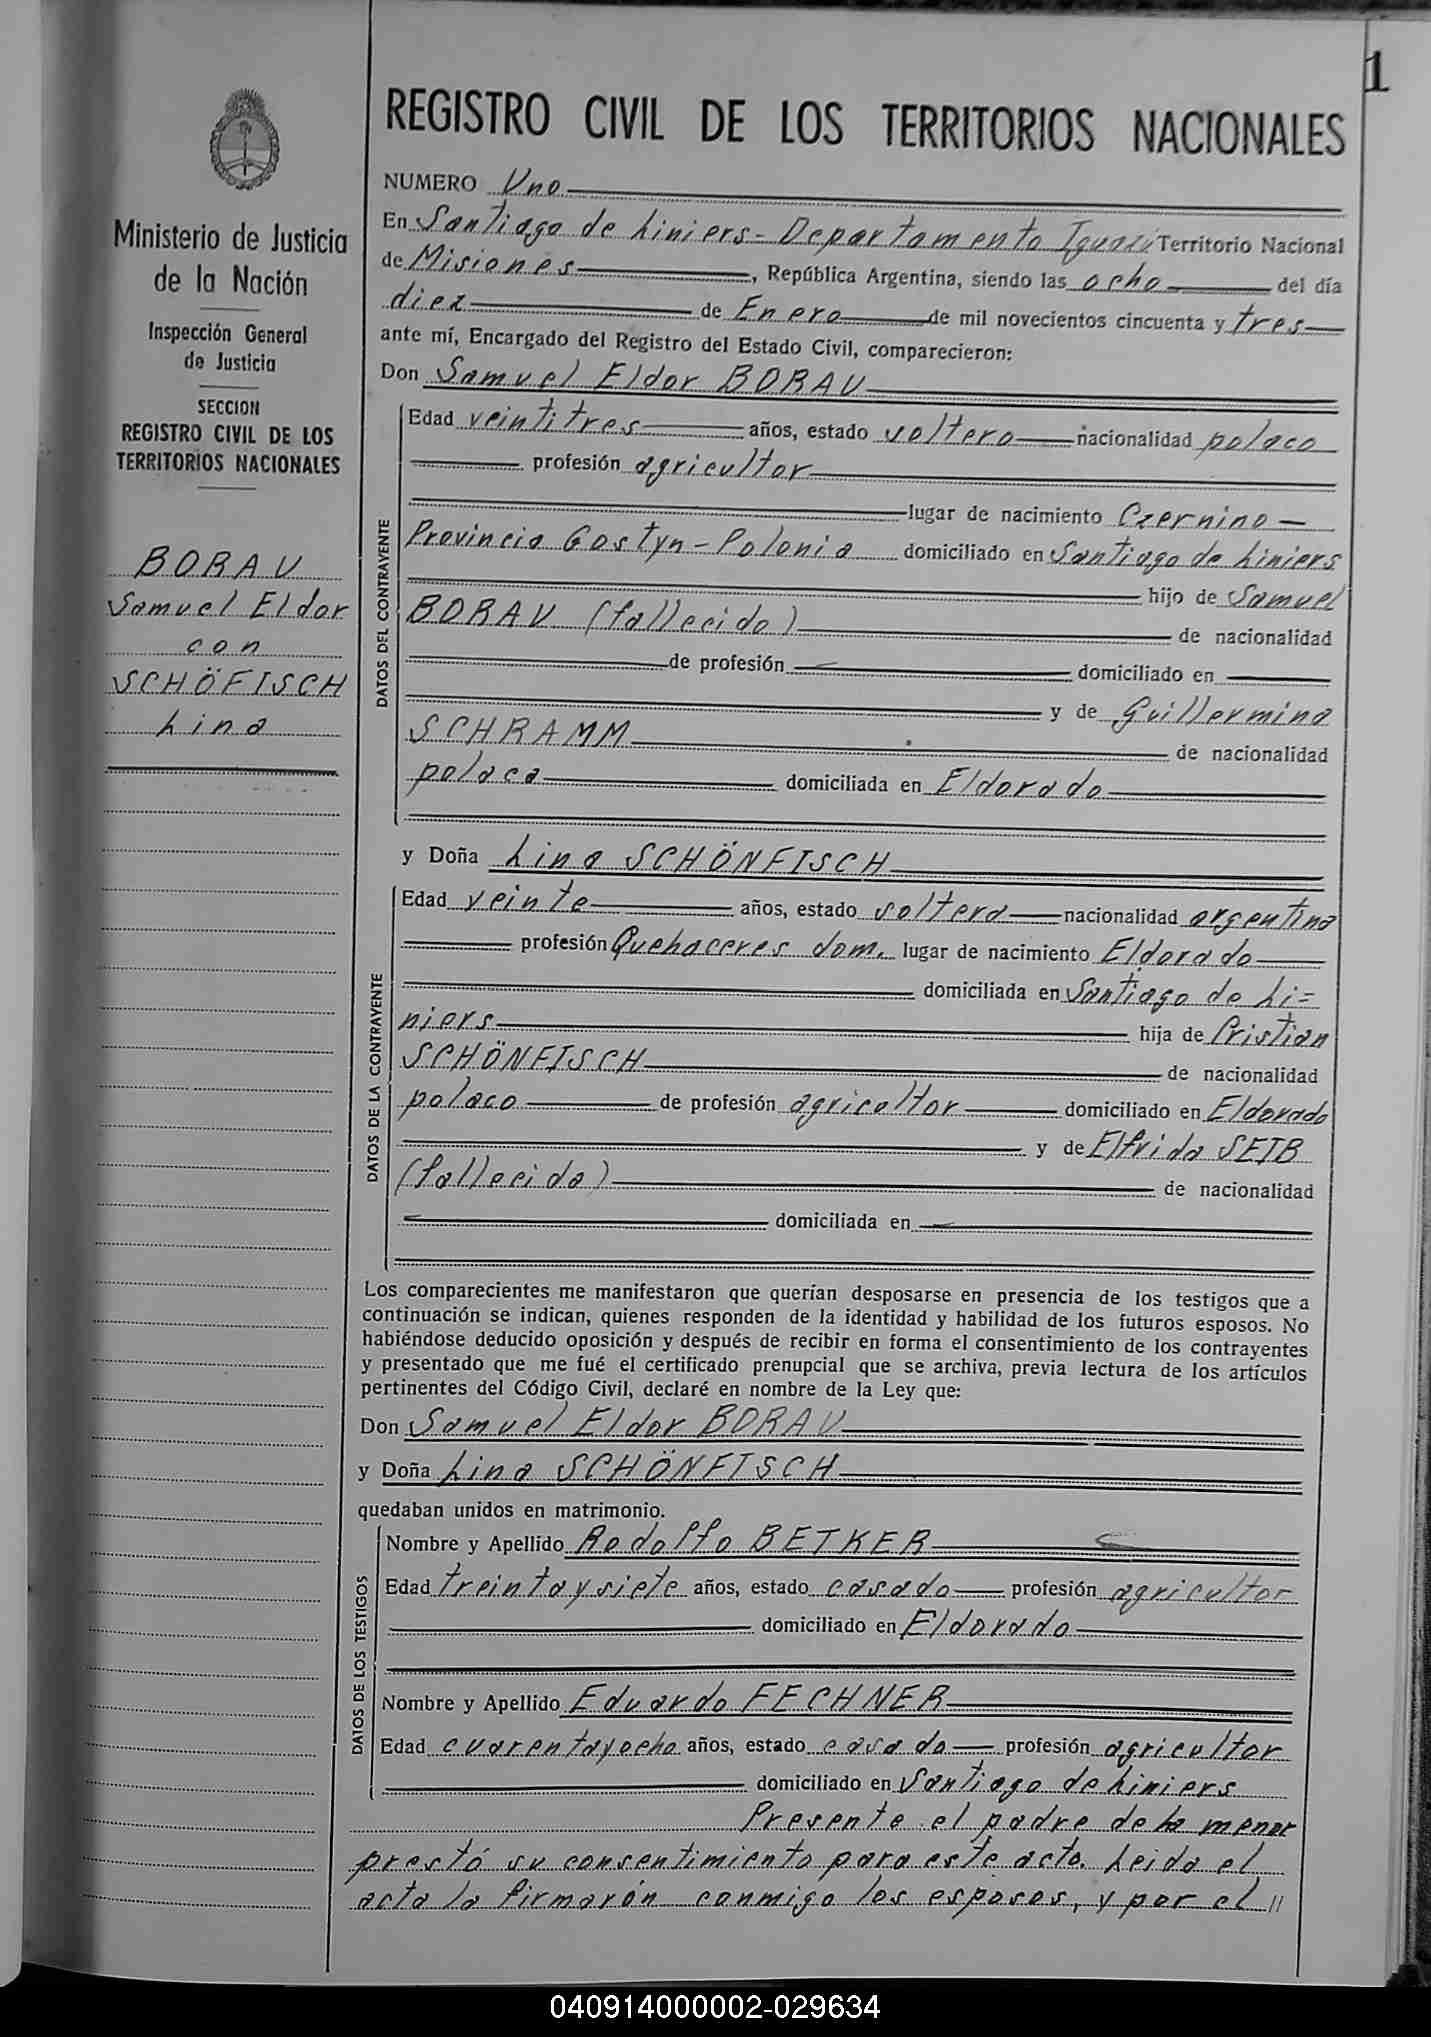 1
REGISTRO CIVIL DE LOS TERRITORIOS NACIONALES
Ministerio de Justicia
de la Nación
Inspección General
de Justicia
SECCION
REGISTRO CIVIL DE LOS
TERRITORIOS NACIONALES
BORAU
Samuel Eldor
con
SCHÖFISCH
Lina
NUMERO Uno
En Santiago de Liniers - Departamento Iguazú Territorio Nacional
de Misiones, República Argentina, siendo las ocho del día
diez de Enero de mil novecientos cincuenta y tres
ante mí, Encargado del Registro del Estado Civil, comparecieron:
Don Samuel Eldor BORAU
DATOS DEL CONTRAYENTE
Edad veintitres años, estado soltero nacionalidad polaco
profesión agricultor
lugar de nacimiento Czernino -
Provincia Gostyn - Polonia domiciliado en Santiago de Liniers
hijo de Samuel
BORAU (fallecido) de nacionalidad
de profesión domiciliado en
y de Guillermina
SCHRAMM de nacionalidad
polaca domiciliada en Eldorado
y Doña Lina SCHÖNFISCH
DATOS DE LA CONTRAYENTE
Edad veinte años, estado soltera nacionalidad argentina
profesión Quehaceres dom. lugar de nacimiento Eldorado
domiciliada en Santiago de Li=
niers hija de Cristian
SCHÖNFISCH de nacionalidad
polaco de profesión agricultor domiciliado en Eldorado
y de Elfrida SEIB
(fallecida) de nacionalidad
domiciliada en
Los comparecientes me manifestaron que querían desposarse en presencia de los testigos que a
continuación se indican, quienes responden de la identidad y habilidad de los futuros esposos. No
habiéndose deducido oposición y después de recibir en forma el consentimiento de los contrayentes
y presentado que me fué el certificado prenupcial que se archiva, previa lectura de los artículos
pertinentes del Código Civil, declaré en nombre de la Ley que:
Don Samuel Eldor BORAU
y Doña Lina SCHÖNFISCH
quedaban unidos en matrimonio.
DATOS DE LOS TESTIGOS
Nombre y Apellido Rodolfo BETKER
Edad treinta y siete años, estado casado profesión agricultor
domiciliado en Eldorado
Nombre y Apellido Eduardo FECHNER
Edad cuarenta y ocho años, estado casado profesión agricultor
domiciliado en Santiago de Liniers
Presente el padre de la menor
prestó su consentimiento para este acto. Leida el
acta la firmarón conmigo los esposos, y por el //
040914000002-029634